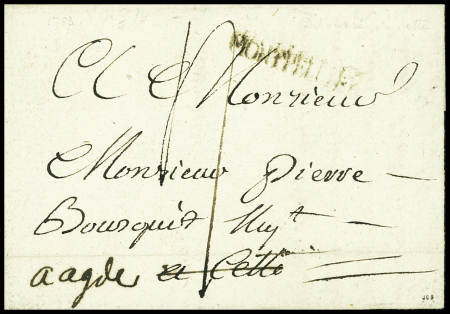 MONTPELLIER
A Monsieur
Monsieur Pierre
Bousquit Ngt
a agde a Cette